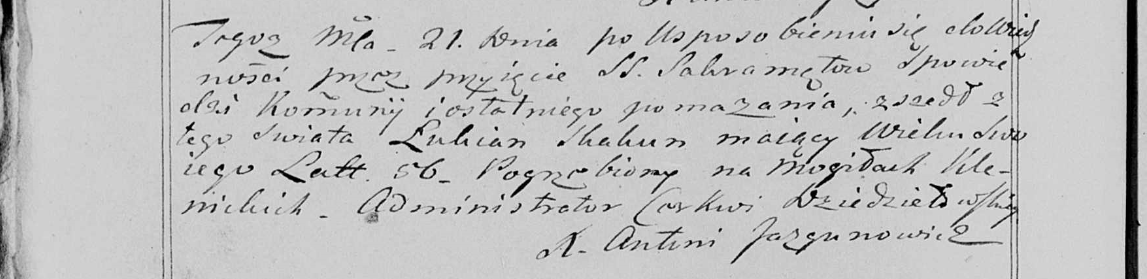 Tegoż Mca 21. Dnia po Usposobieniu się do Wiecz
ności przez przyięcie SS. Sakramętow Spowie
dzi Komunij i ostatniego pomazania, zszedł z
tego Swiata Łukian Skakun maiący Wieku Swo
iego Latt. 56_ Pogrzebiony na Mogiłach Kle-
nickich_ Administrator Cerkwi Dziedziełowskiey
X. Antoni Jazgunowicz